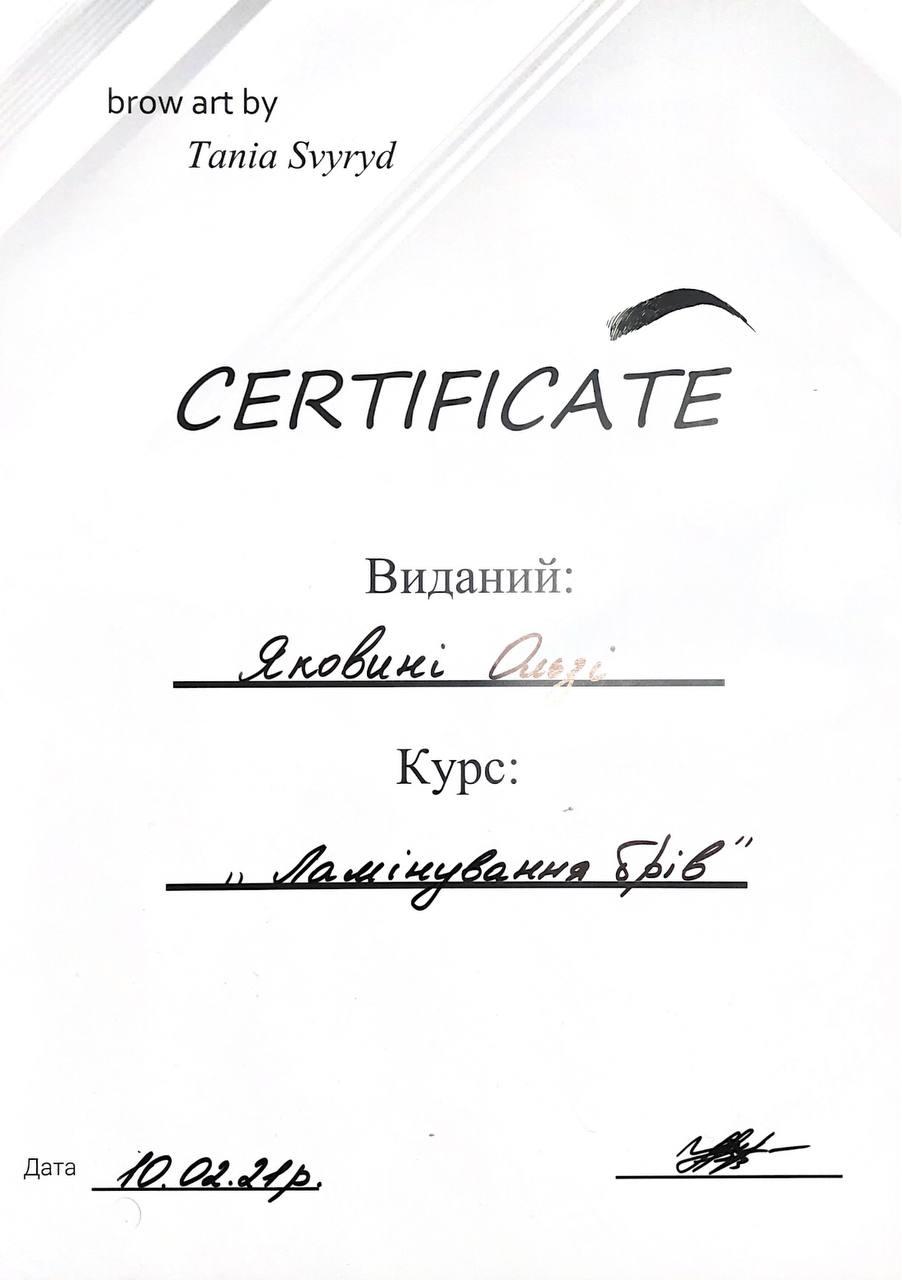 brow art by
Tania Svyryd
CERTIFICATE
Виданий:
Яковині Ользі
Курс:
„Ламінування брів"
Дата 10.02.21р.